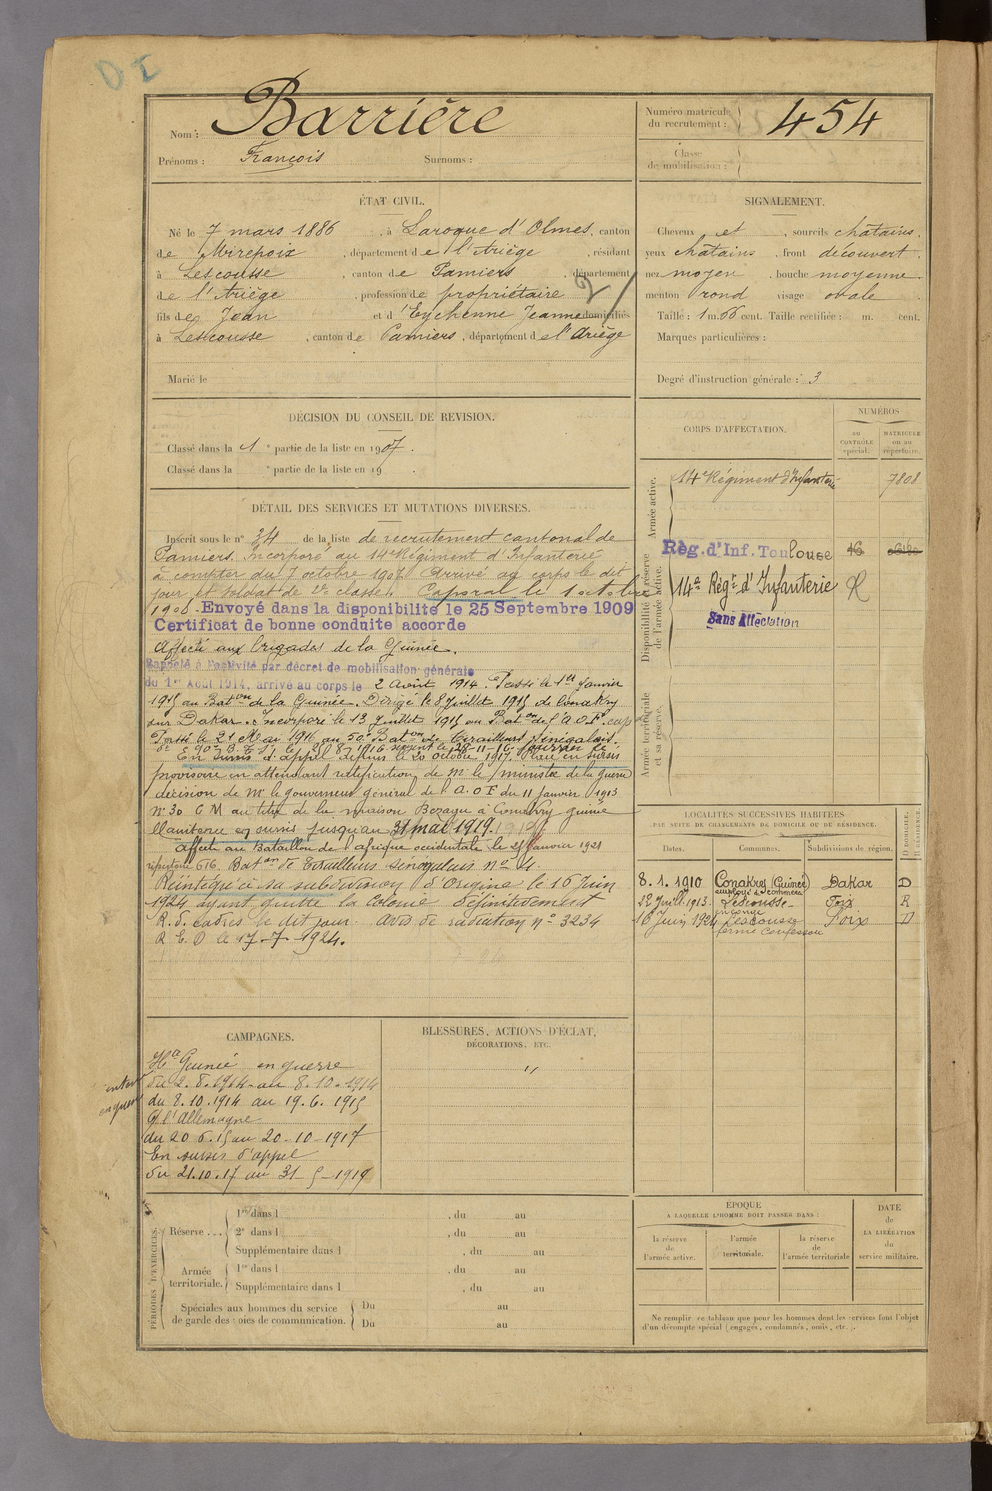 Nom : Barrière
Prénoms : François Surnoms :
Numéro matricule du recrutement : 454
Classe de mobilisation :
ÉTAT CIVIL.
Né le 7 mars 1886, à Laroque d'Olmes, canton
de Mirepoix, département de l'Ariège, résidant
à Lescousse, canton de Pamiers, département
de l'Ariège, profession de propriétaire
fils de Jean et d'Eychenne Jeanne domiciliés
à Lescousse, canton de Pamiers, département de l'Ariège
Marié le
SIGNALEMENT.
Cheveux et, sourcils châtains,
yeux châtains, front découvert
nez moyen, bouche moyenne
menton rond visage ovale
Taille : 1 m. 66 cent. Taille rectifiée : m. cent.
Marques particulières :
Degré d'instruction générale : 3
DÉCISION DU CONSEIL DE REVISION.
Classé dans la 1e partie de la liste en 1907.
Classé dans la e partie de la liste en 19 .
CORPS D'AFFECTATION.
NUMÉROS
AU CONTRÔLE spécial.
MATRICULE ou au répertoire.
Armée active.
14e Régiment d'Infanterie 7808
Disponibilité et réserve de l'armée active.
Règ. d'Inf. Toulouse 16
14e Rég.t d'Infanterie
Sans Affectation
Armée territoriale et sa réserve.
DÉTAIL DES SERVICES ET MUTATIONS DIVERSES.
Inscrit sous le n° 34 de la liste de recrutement cantonal de
Pamiers. Incorporé au 14e Régiment d'Infanterie
à compter du 7 octobre 1907. Arrivé au corps le dit
jour et soldat de 2e classe. Caporal le 1 octobre
1908. Envoyé dans la disponibilité le 25 Septembre 1909
Certificat de bonne conduite accordé
Affecté aux brigades de la Guinée.
Rappelé à l'activité par décret de mobilisation générale
du 1er Août 1914, arrivé au corps le 2 Août 1914. Passé le 1er Janvier
1915 au Baton de la Guinée. Dirigé le 8 Juillet 1915 de Conakry
sur Dakar. Incorporé le 13 Juillet 1915 au Baton de l'A.O.F.
Passé le 21 Mai 1916 au 50e Baton de Tirailleurs Sénégalais.
En sursis d'appel depuis le 20 octobre 1917. Placé en sursis
provisoire en attendant ratification de Mr le ministre de la guerre
décision de Mr le gouverneur général de l'A.O.F du 11 Janvier 1913
N° 30 C M au titre de la maison Bozagu à Conakry guinée
Maintenu en sursis jusqu'au 31 mai 1919.
Affecté au Bataillon de l'afrique occidentale le 25 Janvier 1921
répertoire 616. Baton de Tirailleurs sénégalais n° 4.
Réintégré à sa subdivision d'Origine le 16 Juin
1924 ayant quitté la Colonie définitivement
R. d. cadres le dit jour. Avis de radiation n° 3234
R C D le 17-7-1924.
LOCALITÉS SUCCESSIVES HABITÉES
PAR SUITE DE CHANGEMENTS DE DOMICILE OU DE RÉSIDENCE.
Dates. Communes. Subdivisions de région. D DOMICILE, R RÉSIDENCE.
8.1.1910 Conakry (Guinée) Dakar D
employé de commerce
22 Juill. 1913 Lescousse Foix R
en congé
16 Juin 1924 Lescousse Foix D
CAMPAGNES.
Hte Guinée en guerre
du 2.8.1914 au 8.10.1914
du 8.10.1914 au 19.6.1915
C/ l'Allemagne
du 20.6.15 au 20-10-1917
En sursis d'appel
du 21.10.17 au 31-5-1919
BLESSURES, ACTIONS D'ÉCLAT,
DÉCORATIONS, ETC.
"
PÉRIODES D'EXERCICES.
Réserve ... 1re dans l , du au
2e dans l , du au
Supplémentaire dans l , du au
Armée territoriale. 1re dans l , du au
Supplémentaire dans l , du au
Spéciales aux hommes du service de garde des voies de communication. Du au
Du au
ÉPOQUE
A LAQUELLE L'HOMME DOIT PASSER DANS :
la réserve de l'armée active.
l'armée territoriale.
la réserve de l'armée territoriale
DATE de LA LIBÉRATION du service militaire.
Ne remplir ce tableau que pour les hommes dont les services font l'objet
d'un décompte spécial (engagés, condamnés, omis, etc.).